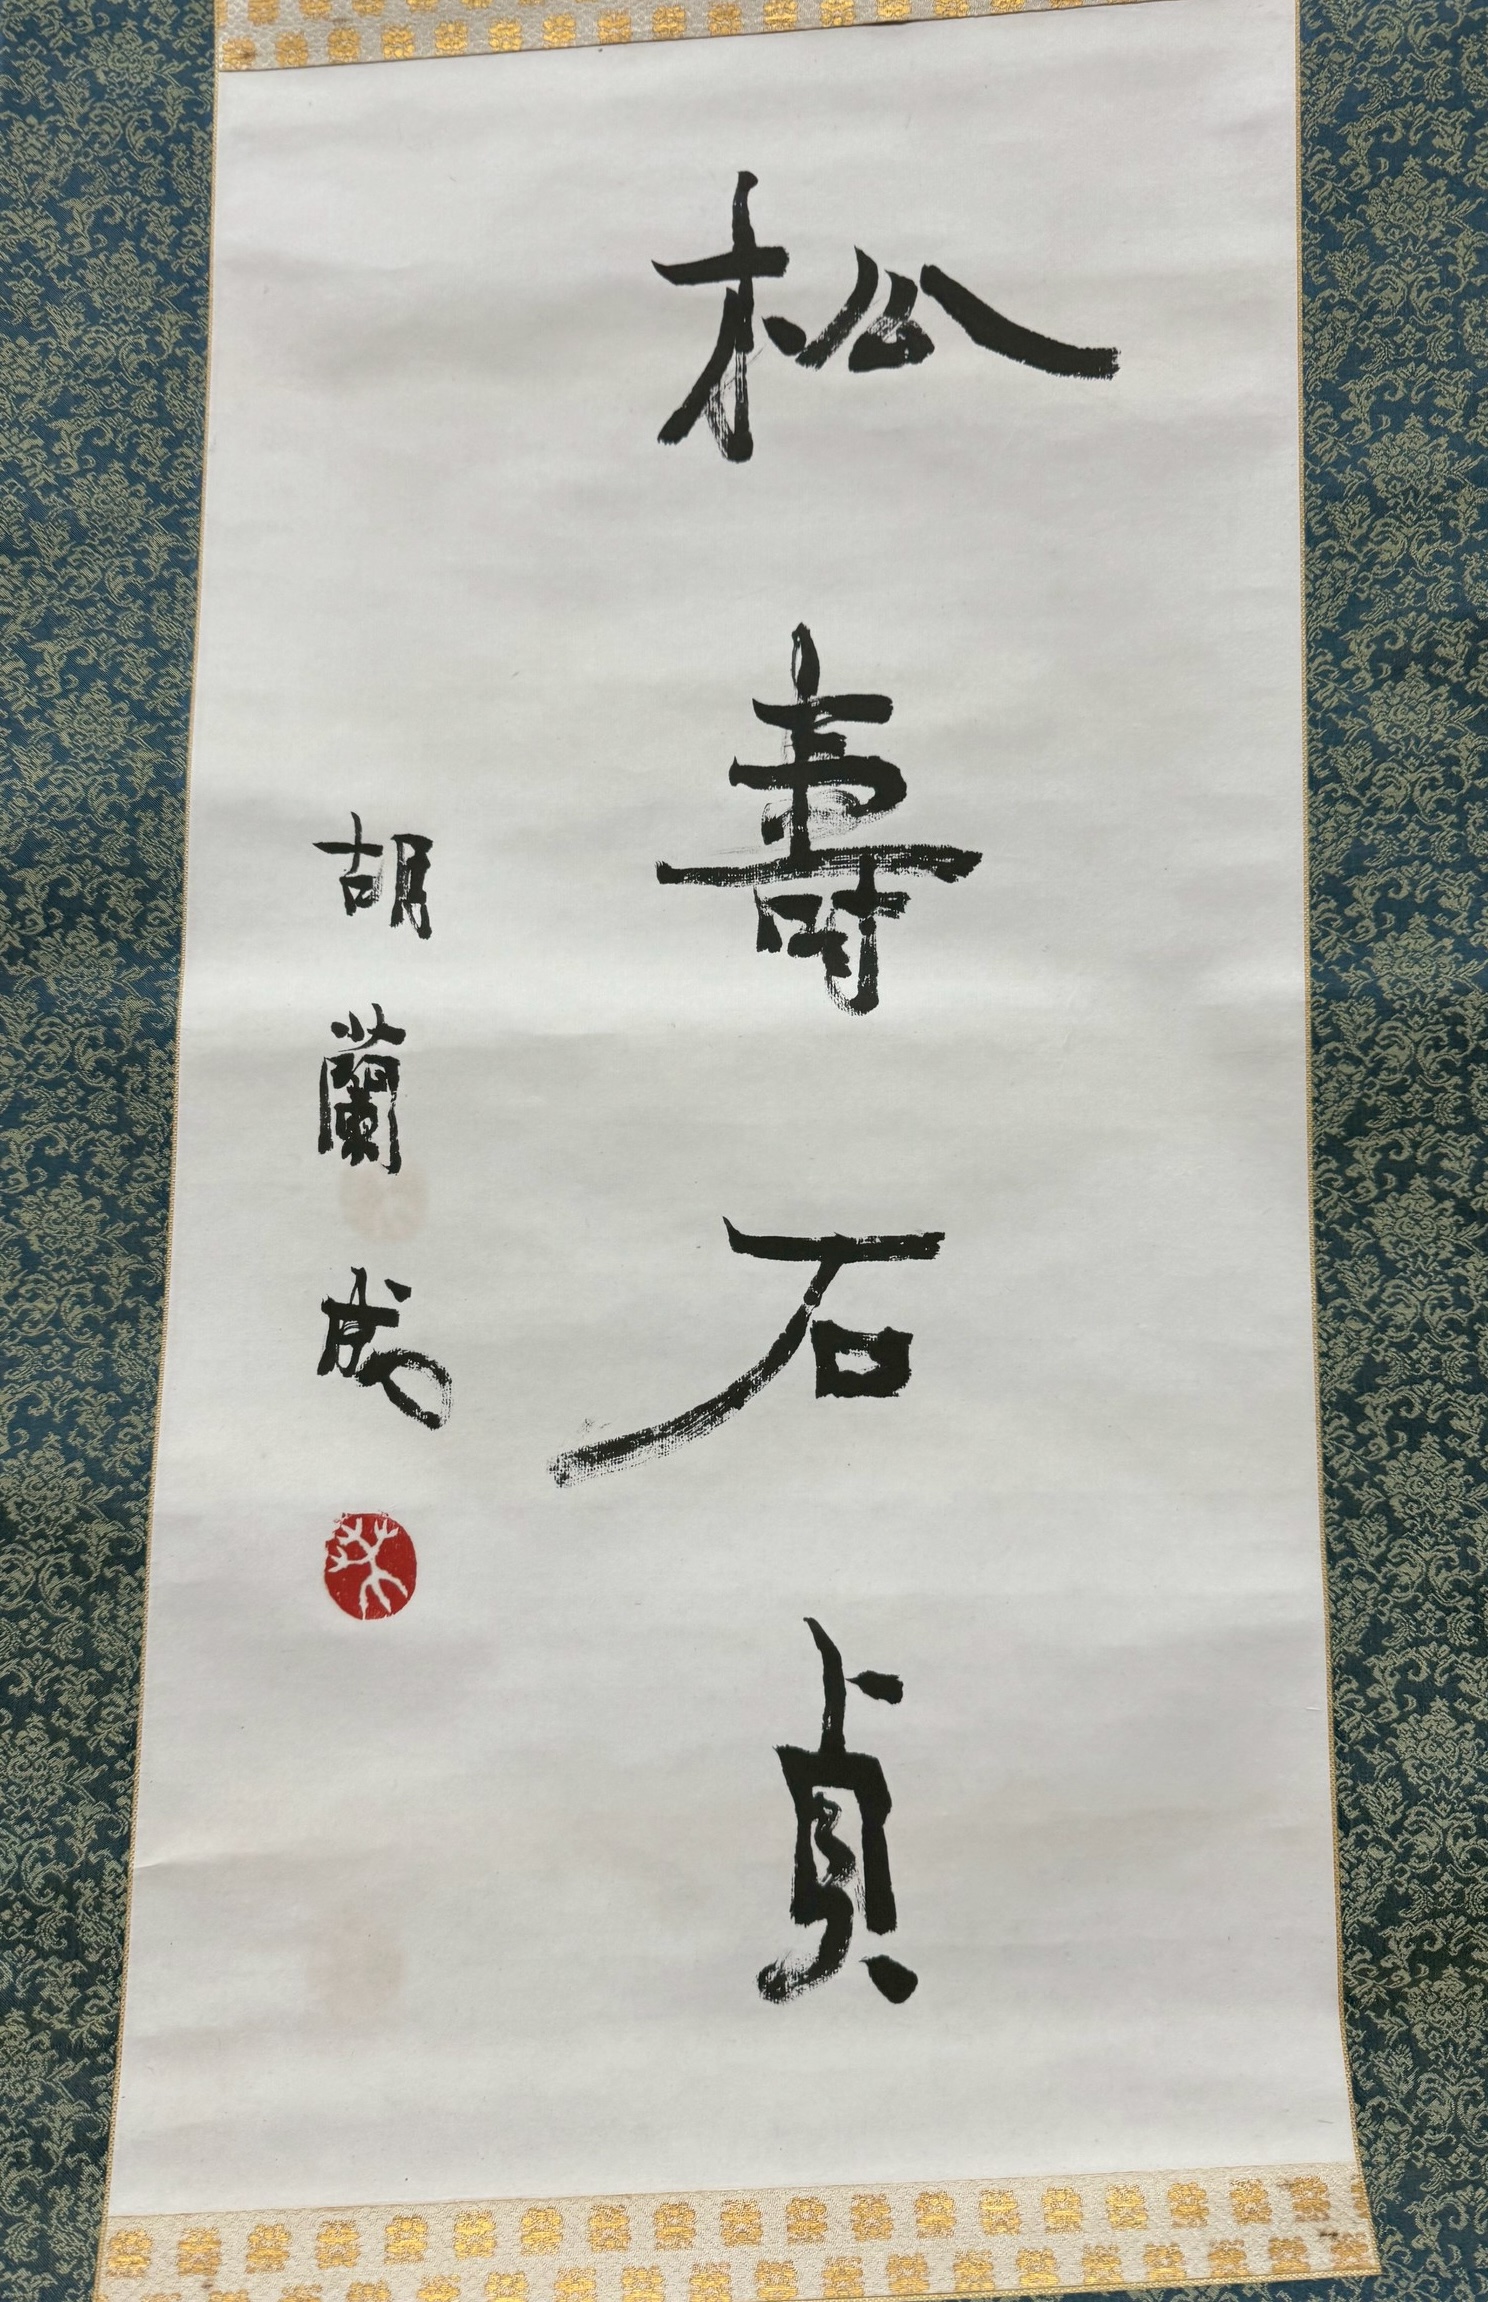 松壽石貞
胡蘭成